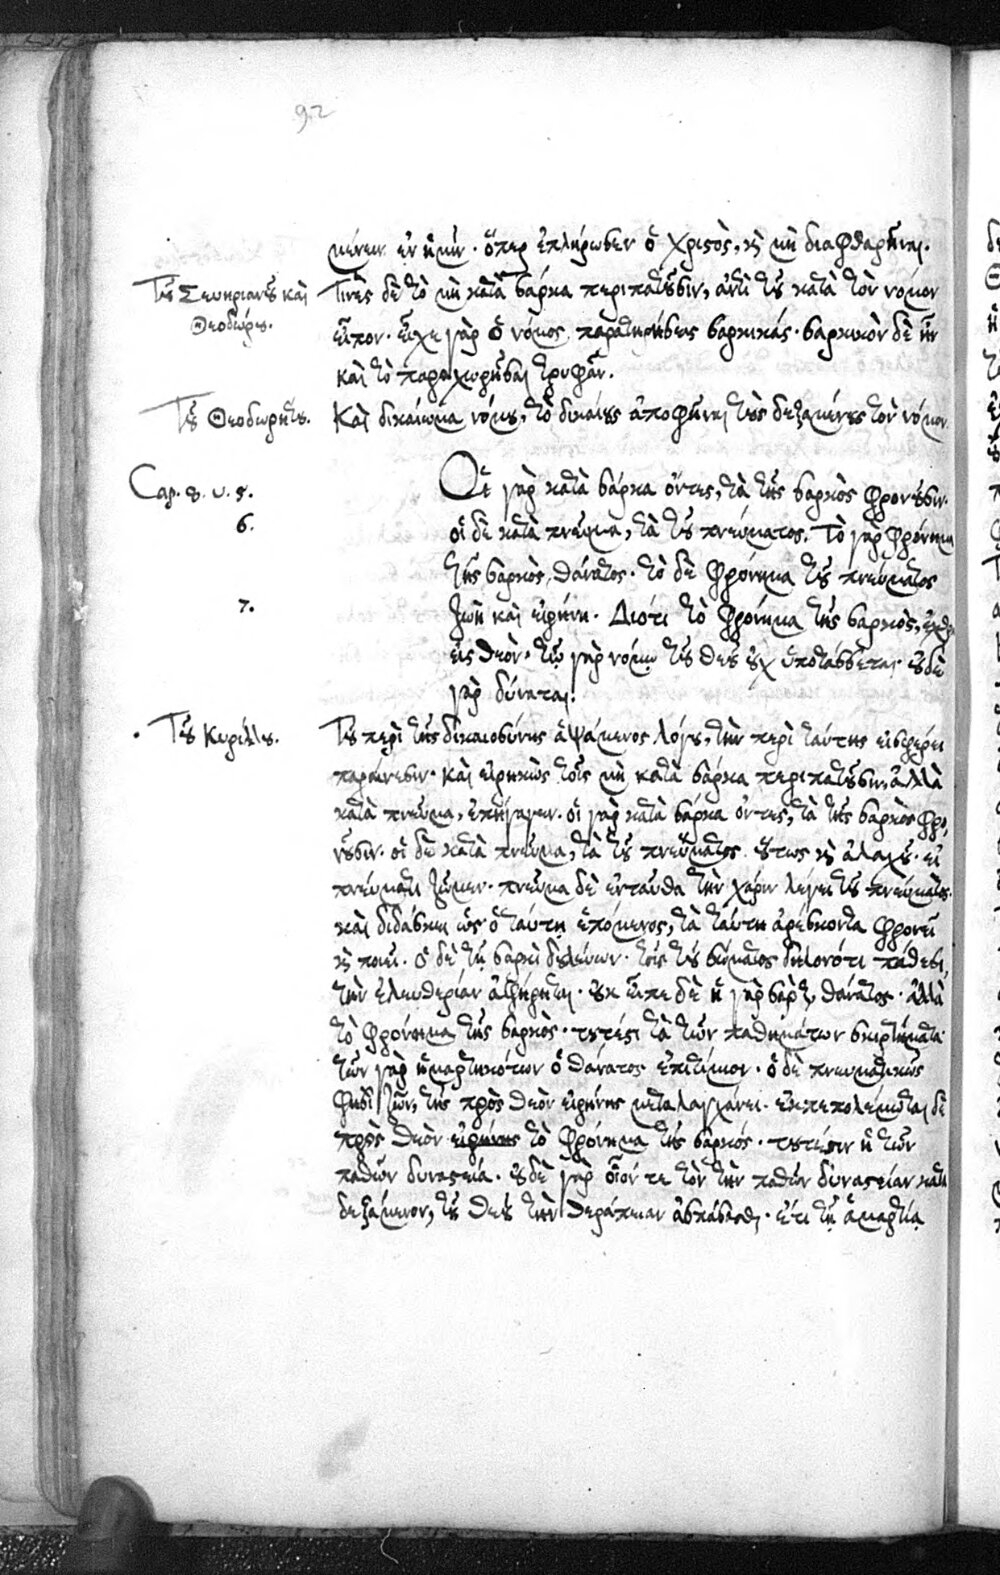 92
μένειν ἐν ἡμῖν· ὅπερ ἐπλήρωσεν ὁ Χριστὸς, καὶ μὴ διαφθαρῆναι.
Τοῦ Σευηριανοῦ καὶ Θεοδώρου.
Τινὲς δὲ τὸ μὴ κατὰ σάρκα περιπατοῦσιν, ἀντὶ τοῦ κατὰ τὸν νόμον
εἶπον· εἶχε γὰρ ὁ νόμος παρατηρήσεις σαρκικάς· σαρκικὸν δὲ ἦν
καὶ τὸ παραχωρῆσαι τρυφᾶν.
Τοῦ Θεοδωρήτου. Καὶ δικαίωμα νόμου, τὸ δικαίους ἀποφῆναι τοὺς δεξαμένους τὸν νόμον.
Cap. 8. v. 5. Οἱ γὰρ κατὰ σάρκα ὄντες, τὰ τῆς σαρκὸς φρονοῦσιν.
6. οἱ δὲ κατὰ πνεῦμα, τὰ τοῦ πνεύματος. Τὸ γὰρ φρόνημα
τῆς σαρκὸς, θάνατος· τὸ δὲ φρόνημα τοῦ πνεύματος
7. ζωὴ καὶ εἰρήνη. Διότι τὸ φρόνημα τῆς σαρκὸς, ἔχθρα
εἰς θεόν· τῷ γὰρ νόμῳ τοῦ θεοῦ οὐχ ὑποτάσσεται· οὐδὲ
γὰρ δύναται.
Τοῦ Κυρίλλου. Τοῦ περὶ τῆς δικαιοσύνης ἁψάμενος λόγου, τὴν περὶ ταύτης εἰσφέρει
παραίνεσιν· καὶ εἰρηκὼς τοῖς μὴ κατὰ σάρκα περιπατοῦσιν, ἀλλὰ
κατὰ πνεῦμα, ἐπήγαγεν· οἱ γὰρ κατὰ σάρκα ὄντες, τὰ τῆς σαρκὸς φρο-
νοῦσιν· οἱ δὲ κατὰ πνεῦμα, τὰ τοῦ πνεύματος. οὕτως καὶ ἀλαχοῦ· εἰ
πνεύματι ζῶμεν· πνεῦμα δὲ ἐνταῦθα τὴν χάριν λέγει τοῦ πνεύματος·
καὶ διδάσκει ὡς ὁ ταύτῃ ἑπόμενος, τὰ ταύτῃ ἀρέσκοντα φρονεῖ
καὶ ποιεῖ. ὁ δὲ τῇ σαρκὶ δουλεύων· τοῖς τοῦ σώματος δηλονότι πάθεσι,
τὴν ἐλευθερίαν ἀφῄρηται· οὐκ εἶπε δὲ ἡ γὰρ σὰρξ, θάνατος· ἀλλὰ
τὸ φρόνημα τῆς σαρκὸς· τουτέστι τὰ τῶν παθημάτων σκιρτήματα·
τῶν γὰρ ἡμαρτηκότων ὁ θάνατος ἐπιτίμιον· ὁ δὲ πνευματικῶς
φησὶ ζῶν, τῆς πρὸς θεὸν εἰρήνης μεταλαγχάνει. ἐκπεπολέμωται δὲ
πρὸς θεὸν εἰρήνης τὸ φρόνημα τῆς σαρκός· τουτέστιν ἡ τῶν
παθῶν δυναστεία. οὐδὲ γὰρ οἷόν τε τὸν τὴν παθῶν δυναστείαν κατα
δεξάμενον, τοῦ θεοῦ τὴν θεράπειαν ἀσπάσασθαι· ἔτι τῇ ἁμαρτίᾳ